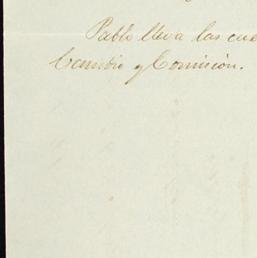 Pablo lleva las cue
Cambio y Comisión.